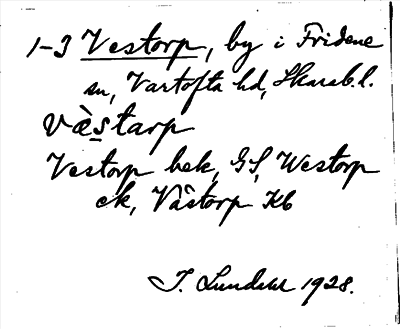 1-3 Vestorp, by i Fridene
sn, Vartofta hd, Skarab.l.
vàstarp
Vestorp bek, GS, Westorp
ek, Västorp Kb
J. Lundahl 1928.